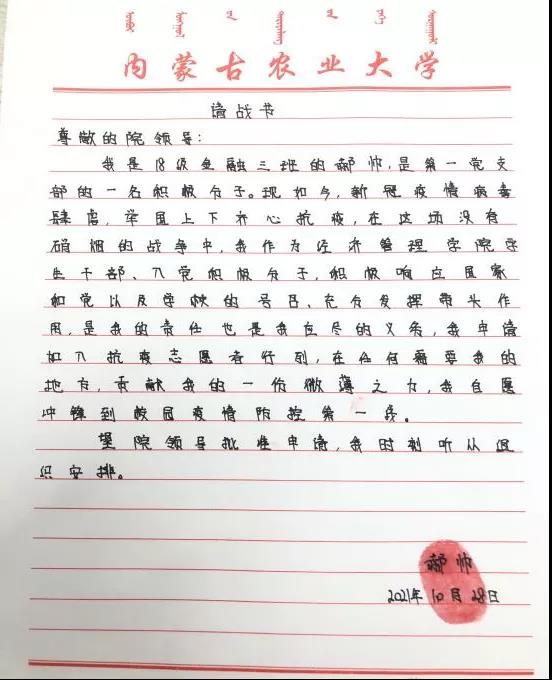 内蒙古农业大学
请战书
尊敬的院领导:
我是18级金融三班的郝帅,是第一党支
部的一名积极分子。现如今,新冠疫情病毒
肆虐,举国上下齐心抗疫,在这场没有
硝烟的战争中,我作为经济管理学院学
生干部、入党积极分子,积极响应国家
和党以及学校的号召、充分发挥带头作
用,是我的责任也是我应尽的义务,我申请
加入抗疫志愿者行列,在任何需要我的
地方,贡献我的一份微薄之力,我自愿
冲锋到校园疫情防控第一线。
望院领导批准申请,我时刻听从组
织安排。
郝帅
2021年10月28日